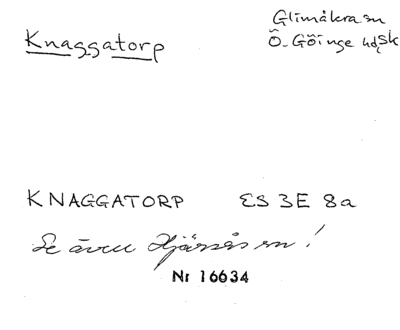 Knaggatorp
Glimåkra sn
Ö. Göinge hd Sk
KNAGGATORP ES 3E 8a
Se även Hjärsås sn!
Nr 16634